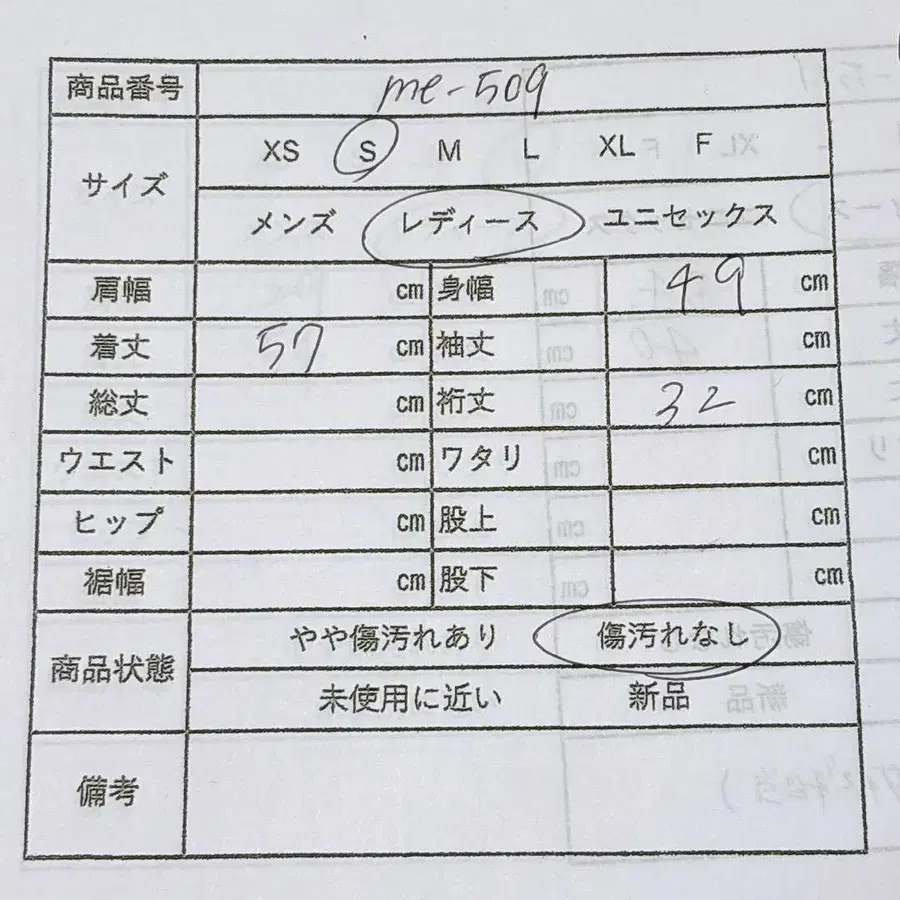 商品番号 me-509
サイズ XS S M L XL F
メンズ レディース ユニセックス
肩幅 cm 身幅 49 cm
着丈 57 cm 袖丈 cm
総丈 cm 裄丈 32 cm
ウエスト cm ワタリ cm
ヒップ cm 股上 cm
裾幅 cm 股下 cm
商品状態 やや傷汚れあり 傷汚れなし
未使用に近い 新品
備考